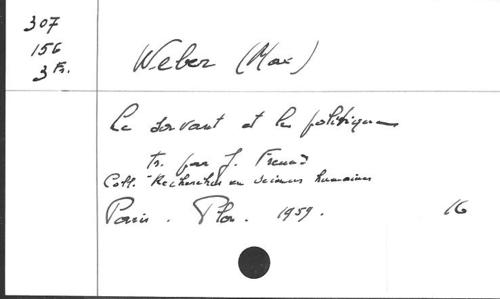 307
156
3 Fr.
Weber (Max)
Le savant et le politique
Tr. par J. Freund
Coll. "Recherches en sciences humaines
Paris. Plon. 1959.
16